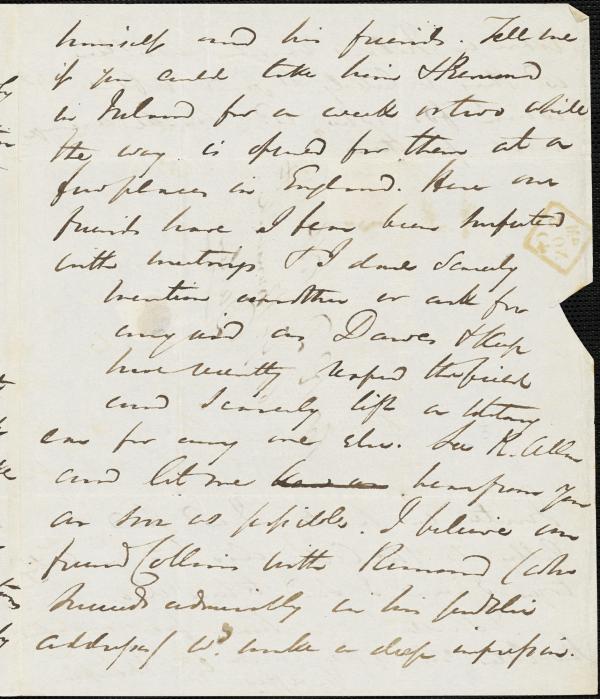 himself and his friends. Tell me
if you could take him & Remond
in Ireland for a week or two while
the way is opened for them at a
few places in England. Here our
friends have I fear been surfeited
with meetings & I dare scarcely
mention another or ask for
any aid as Dawes & Keep
have recently reaped the field
and scarcely left a solitary
ear for any one else. See R. Allen
and let me hear from you
as soon as possible. I believe our
friend Collins with Remond (who
succeeds admirably in his public
address) wd. make a deep impression.